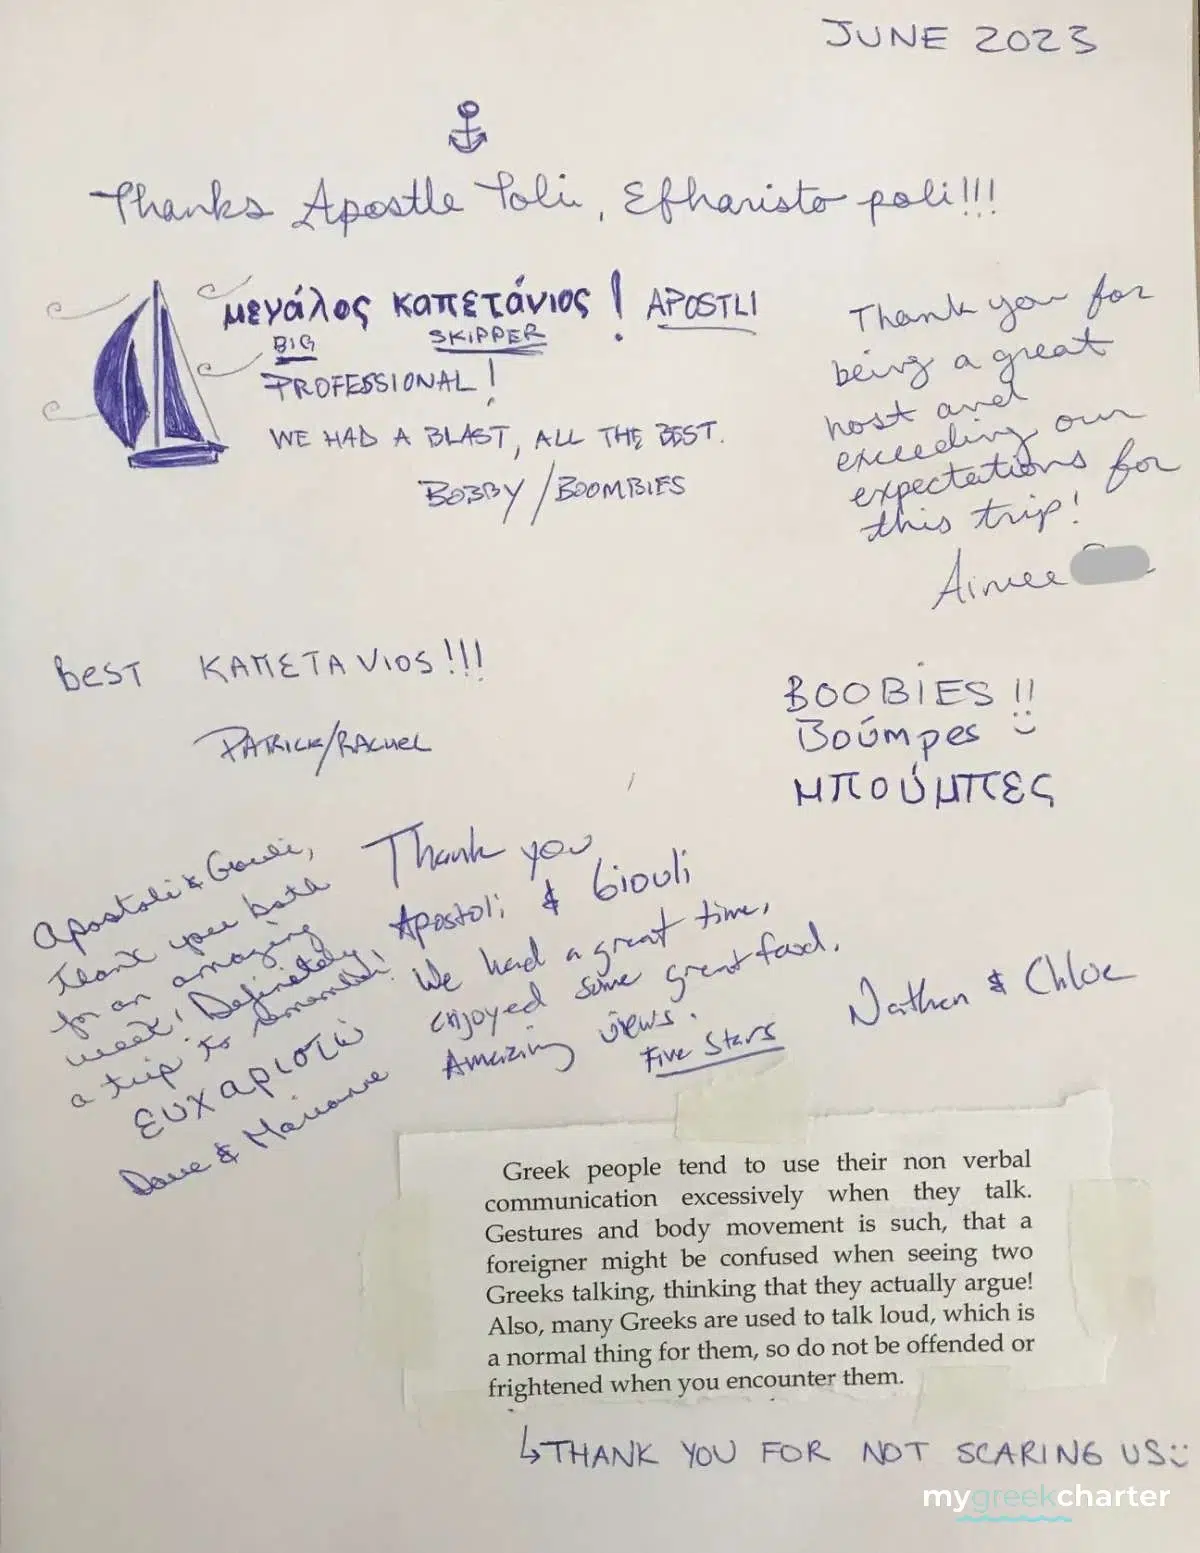 JUNE 2023
Thanks Apostle Toli, Efharisto poli!!!
μεγάλος καπετάνιος! APOSTLI
BIG SKIPPER
PROFESSIONAL!
WE HAD A BLAST, ALL THE BEST.
BOBBY/BOOMBIES
Thank you for
being a great
host and
exceeding our
expectations for
this trip!
Aimee
BEST ΚΑΠΕΤΑΝΙΟS!!!
PATRICK/RACHEL
BOOBIES!!
Βούmpes
μπούμπες
Apostoli & Giouli,
Thank you both
for an amazing
week! Definitely
a trip to remember!
ευχαριστώ
Dave & Marianne
Thank you
Apostoli & Giouli
We had a great time,
enjoyed some great food.
Amazing views.
Five Stars
Nathan & Chloe
Greek people tend to use their non verbal
communication excessively when they talk.
Gestures and body movement is such, that a
foreigner might be confused when seeing two
Greeks talking, thinking that they actually argue!
Also, many Greeks are used to talk loud, which is
a normal thing for them, so do not be offended or
frightened when you encounter them.
↳THANK YOU FOR NOT SCARING US
mygreekcharter